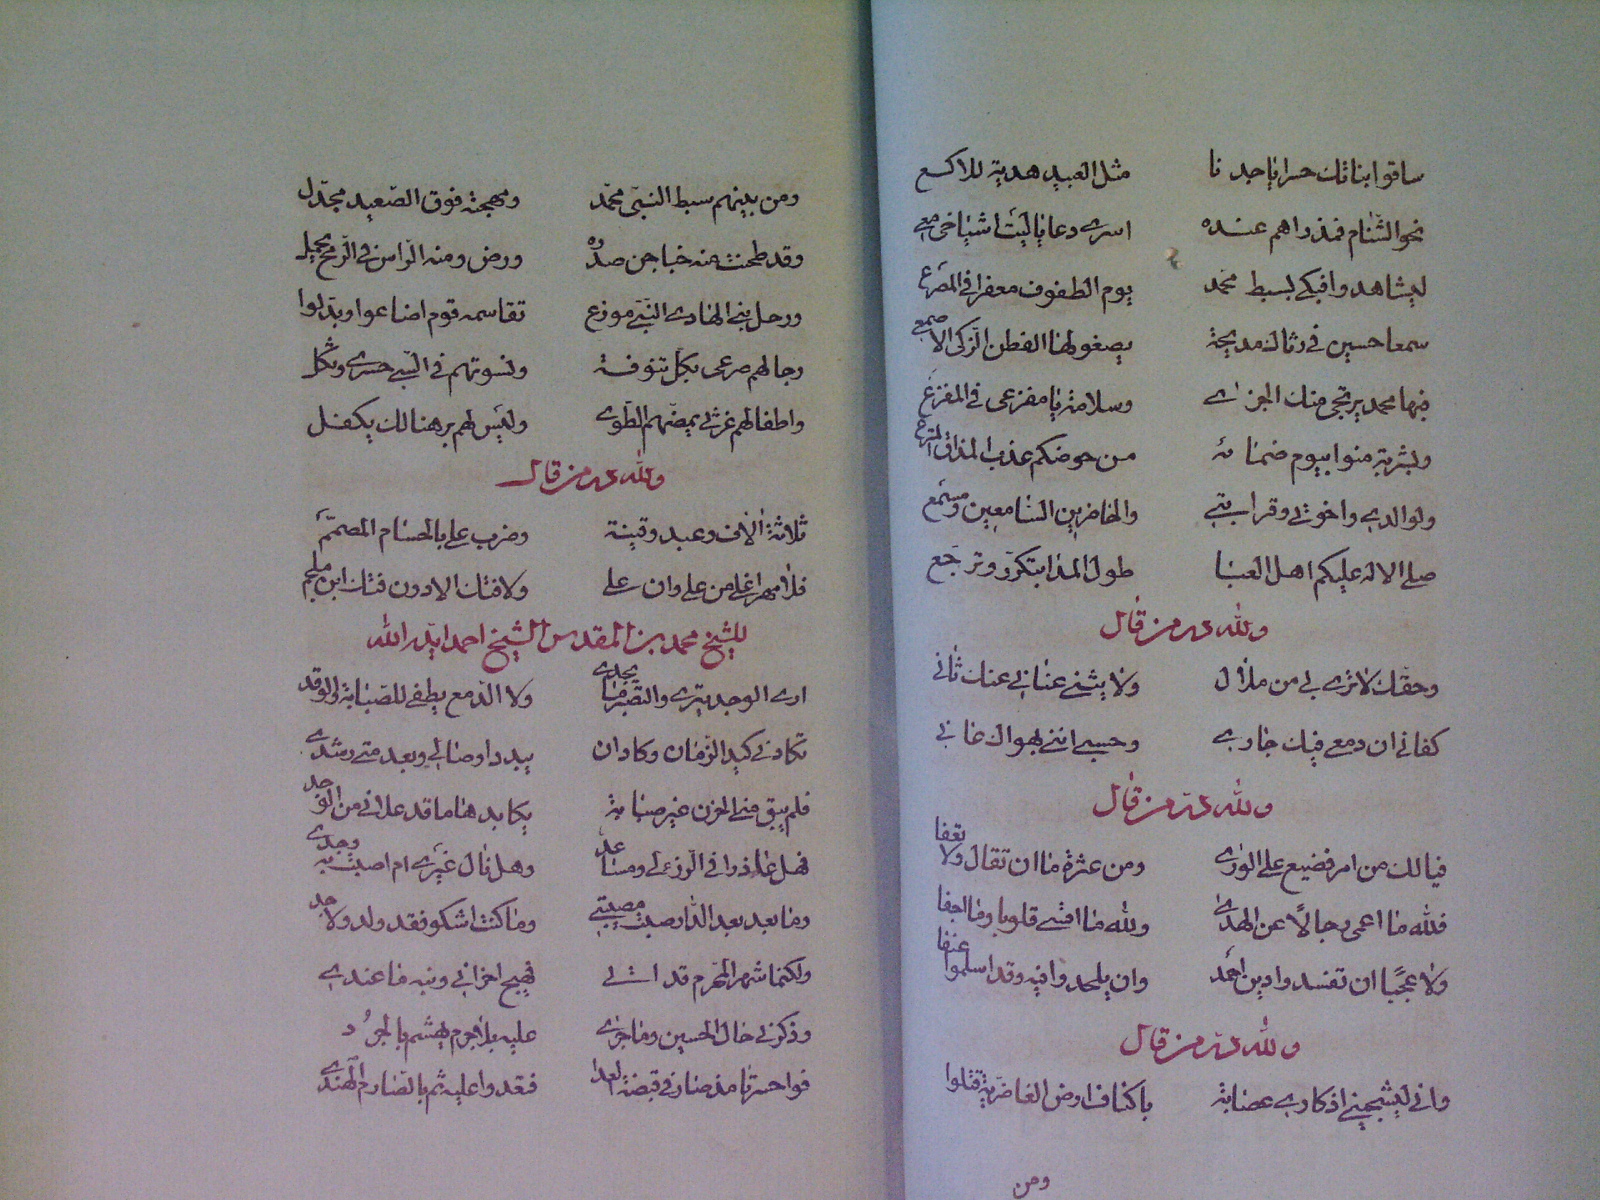 ساقوا بناتك حسرا يا جدنا مثل العبيد هدية للاكسع
نحو الشام فمذ راهم عنده اسرى دعا يا ليت اشياخي معي
ليشاهدوا فبكى لسبط محمد يوم الطفوف معفرا في المصرع
سمعا حسين في رثاك مديحة يصغو لها الفطن الزكي الاصمعي
فيها محمد يرتجي منك الجزاء وسلامة يا مفزعي في المفزع
وبشربة منوا بيوم ضمائه من حوضكم عذب المذاق المترع
ولوالدي واخوتي وقرابتي والحاضرين السامعين ومسمع
صلى الاله عليكم اهل العبا طول المدا بتكرر وترجع
ولله در من قال
وحقك لا ترى لي من ملال ولا يثني عناني عنك ثاني
كفاني ان دمعي فيك جاري وحسبي انني بهواك فاني
ولله در من قال
فيالك من امر فضيع على الورى ومن عثرة ما ان تقال ولا تعفا
فلله ما اعمى رجالا عن الهدى ولله ما اقسى قلوبا وما اجفا
ولا عجبا ان تفسدوا دين احمد وان يلحدوا فيه وقد اسلموا عنفا
ولله در من قال
واني ليشجيني اذكاري عصابة باكناف ارض الغاضرية قتلوا
ومن
ومن بينهم سبط النبي محمد ومهجته فوق الصعيد مجدل
وقد طحنت منه خباجن صدره ورض ومنه الراس في الرمح يحمل
ورحل بني الهادي النبي موزع تقاسمه قوم اضاعوا وبدلوا
رجالهم صرعى بكل تنوفة ونسوتهم في السبي حسرى وثكل
واطفالهم غرثى يمضهم الطوى وليس لهم بر هنالك يكفل
ولله در من قال
ثلاثة الاف وعبد وقينة وضرب علي بالحسام المصمم
فلا مهر اغلى من علي وان علا ولا فتك الا دون فتك ابن ملجم
للشيخ محمد بن المقدس الشيخ احمد ايده الله
ارى الوجد يترى والتصبر ما يجدي ولا الدمع يطفي للصبابة والوقد
تكادني كيد الزمان وكاد ان يبدد اوصالي وبعد متى رشدي
فلم يبق مني الحزن غير صبابة يكابدها ما قد علاني من الوجد
فهل عاذرا في الرزء لي ومساعد وهل نال غيري ام اصبت به وحدي
وما بعد بعد الدار صبت مصيبتي وما كنت اشكو فقد ولد ولا جد
ولكنما شهر المحرم قد اتى فهيج احزاني ونبه ما عندي
وذكرني حال الحسين وما جرى عليه بلا جرم يهشم بالجرد
فواحسرتا مذ صار في قبضة العدا فقدوا عليه ثم بالصارم الهندي